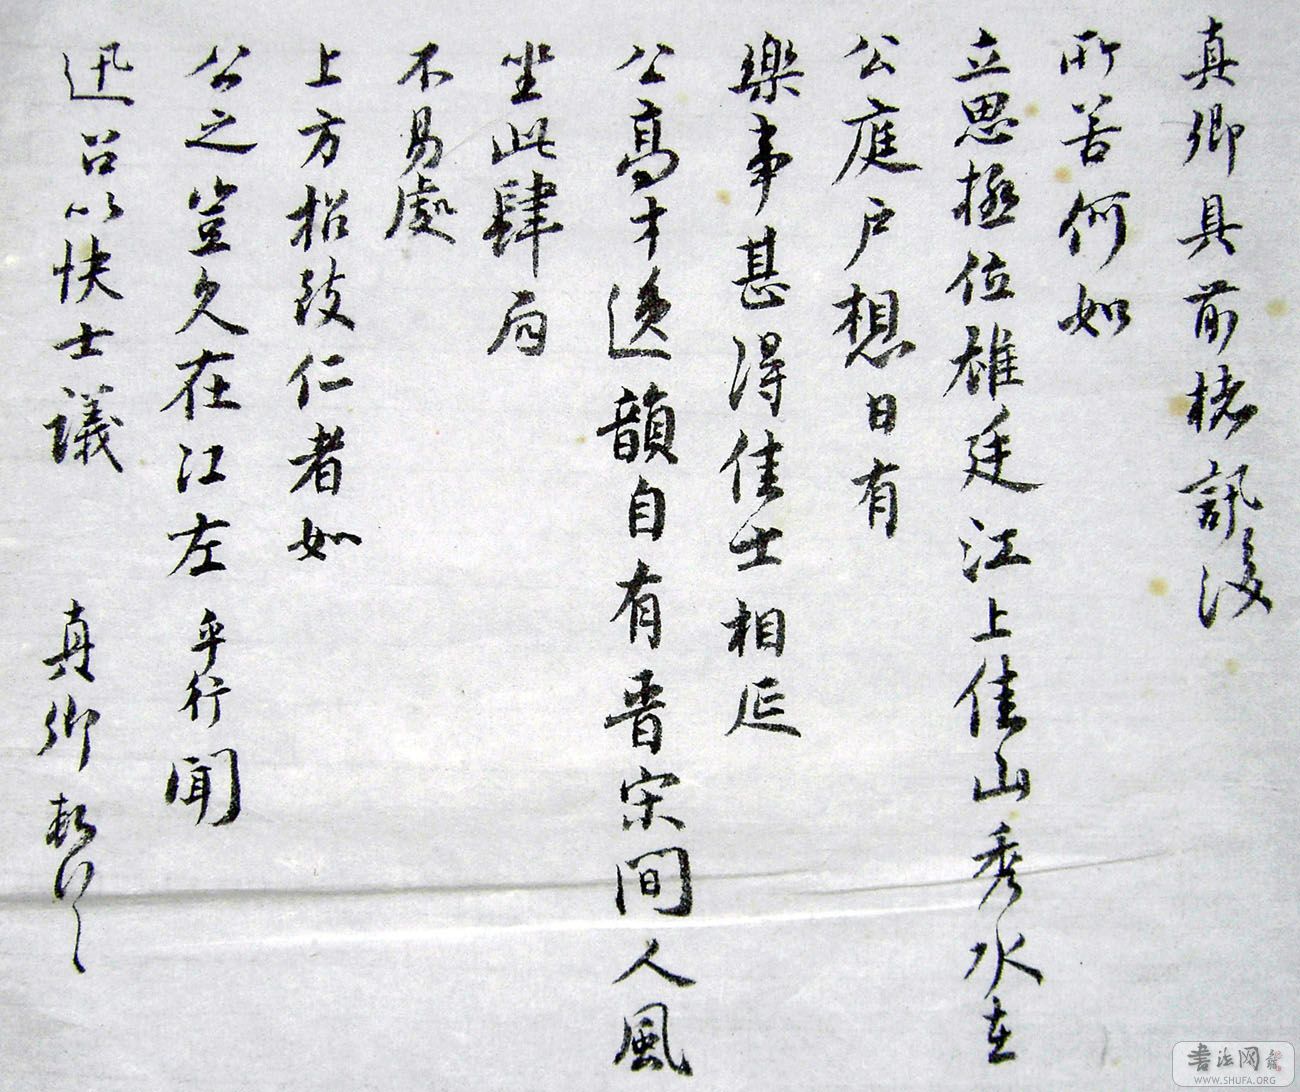 真卿具前
訊後
所苦何如
立思極位雄廷江上佳山秀水在
公庭户想日有
樂事甚得佳士相延
公高才逸韻自有晋宋間人風
坐此肆
不易處
上方招致仁者如
公之豈久在江左乎行聞
迅召以快士議
真卿
書法网
WWW.SHUFA.ORG